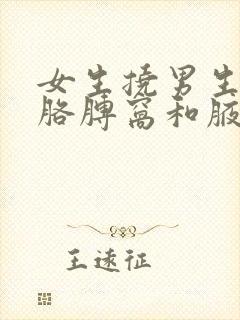 女生挠男生
胳膊窝和腋
王远征